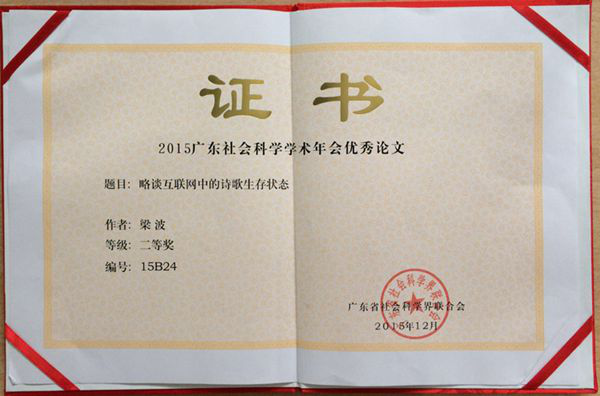 证书
2015广东社会科学学术年会优秀论文
题目：略谈互联网中的诗歌生存状态
作者：梁 波
等级：二等奖
编号：15B24
广东省社会科学界联合会
2015年12月